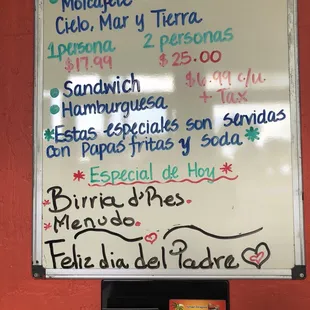 Molcajete
Cielo, Mar y Tierra
1persona 2 personas
$17.99 $25.00
Sandwich $6.99 c/u
Hamburguesa + Tax
*Estas especiales son servidas
con Papas fritas y soda*
* Especial de Hoy *
*Birria d'Res.
*Menudo.
Feliz dia del Padre